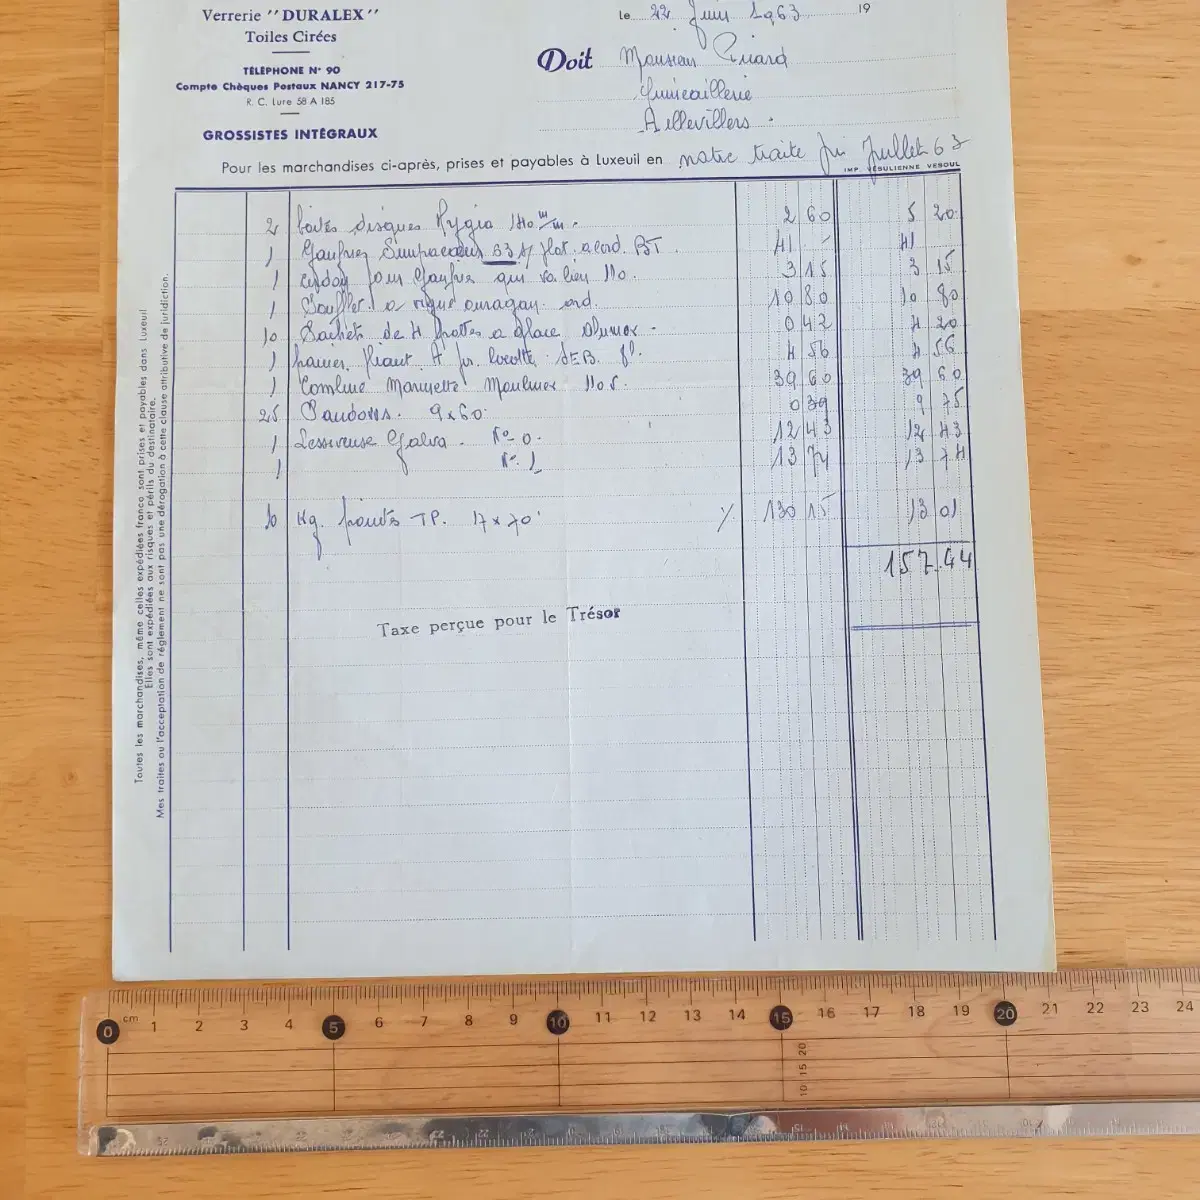 Verrerie "DURALEX"
Toiles Cirées
TÉLÉPHONE N° 90
Compte Chèques Postaux NANCY 217-75
R. C. Lure 58 A 185
GROSSISTES INTÉGRAUX
Le 22 Juin 1963 19
Doit Monsieur
Quincaillerie
Aillevillers.
Pour les marchandises ci-après, prises et payables à Luxeuil en notre traite fin Juillet 63
IMP. VÉSULIENNE VESOUL
2 boites disques Hygia 140 m/m. 2 60 5 20
1 Gaufrier 53 41 - 41
1 cordon pour Gaufrier 110. 3 15 3 15
1 Soufflet a ouragan ord. 10 80 10 80
10 Sachets de 4 a glace 0 42 4 20
1 panier A pr. Cocotte SEB. 4 56 4 56
1 Combiné Marinette Moulinex 1105. 39 60 39 60
25 9x60. 0 39 9 75
1 Lessiveuse Galva. N° 0. 12 43 12 43
1 N° 1 13 74 13 74
10 Kg. TP. 17 x 70 % 130 15 13 01
157.44
Taxe perçue pour le Trésor
Toutes les marchandises, même celles expédiées franco sont prises et payables dans Luxeuil
Elles sont expédiées aux risques et périls du destinataire.
Mes traites ou l'acceptation de réglement ne sont pas une dérogation à cette clause attributive de juridiction.
0 cm 1 2 3 4 5 6 7 8 9 10 11 12 13 14 15 16 17 18 19 20 21 22 23 24
10 15 20